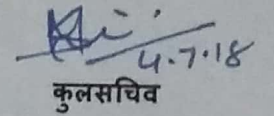 4.7.18
कुलसचिव